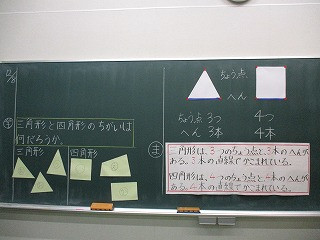 三角形と四角形のちがいは
何だろうか。
三角形 四角形
ちょう点
へん
ちょう点 3つ 4つ
へん 3本 4本
ま
三角形は、3つのちょう点と、3本のへんが
ある。3本の直線でかこまれている。
四角形は、4つのちょう点と4本のへんが
ある。4本の直線でかこまれている。